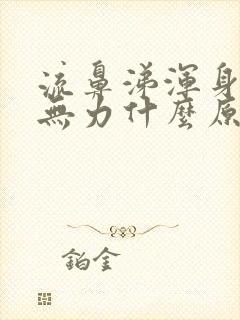 流鼻涕渾身
無力什麼原
鉑金